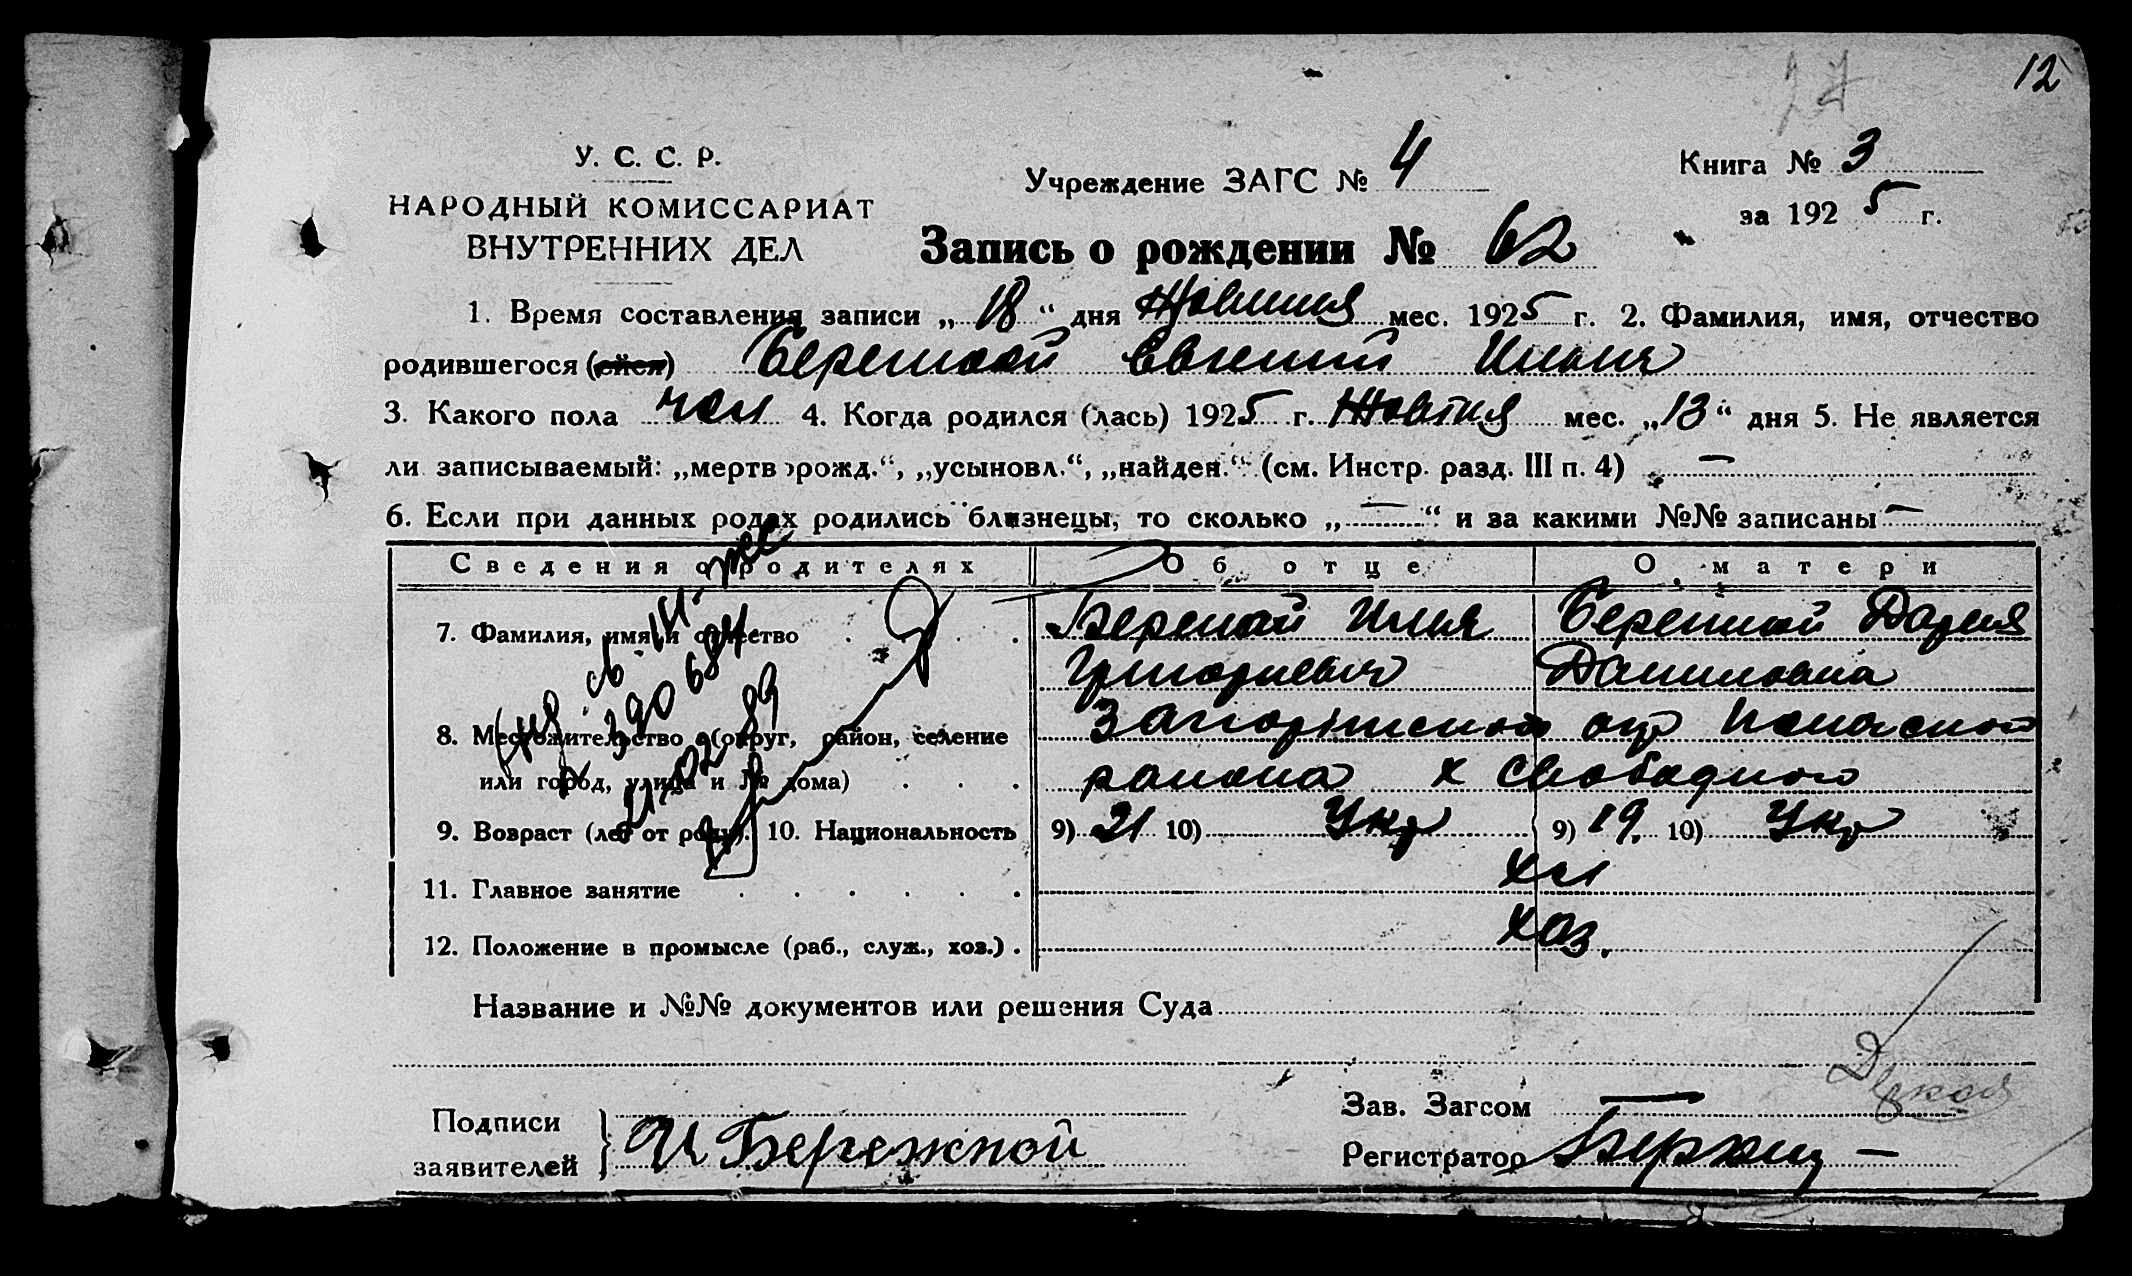 12
27
У. С. С. Р.
НАРОДНЫЙ КОМИССАРИАТ
ВНУТРЕННИХ ДЕЛ
Учреждение ЗАГС № 4
Книга № 3
за 1925 г.
Запись о рождении № 62
1. Время составления записи „18“ дня Жовтня мес. 1925 г. 2. Фамилия, имя, отчество
родившегося (ейся) Бережной Евгений Ильич
3. Какого пола муж 4. Когда родился (лась) 1925 г. Жовтня мес. „13“ дня 5. Не является
ли записываемый: „мертворожд.“, „усыновл.“, „найден.“ (см. Инстр. разд. III п. 4) —
6. Если при данных родах родились близнецы, то сколько „—“ и за какими №№ записаны —
Сведения о родителях Об отце О матери
7. Фамилия, имя и отчество Бережной Илья Бережной Дария
Григориевич Даниловна
8. Местожительство (округ, район, селение Запорожской окр
или город, улица и № дома) района х Свободного
9. Возраст (лет от роду). 10. Национальность 9) 21 10) Укр 9) 19. 10) Укр
11. Главное занятие
12. Положение в промысле (раб., служ., хоз.) хоз.
390684
21.02.89
Название и №№ документов или решения Суда
Подписи
заявителей И Бережной
Зав. Загсом —
Регистратор